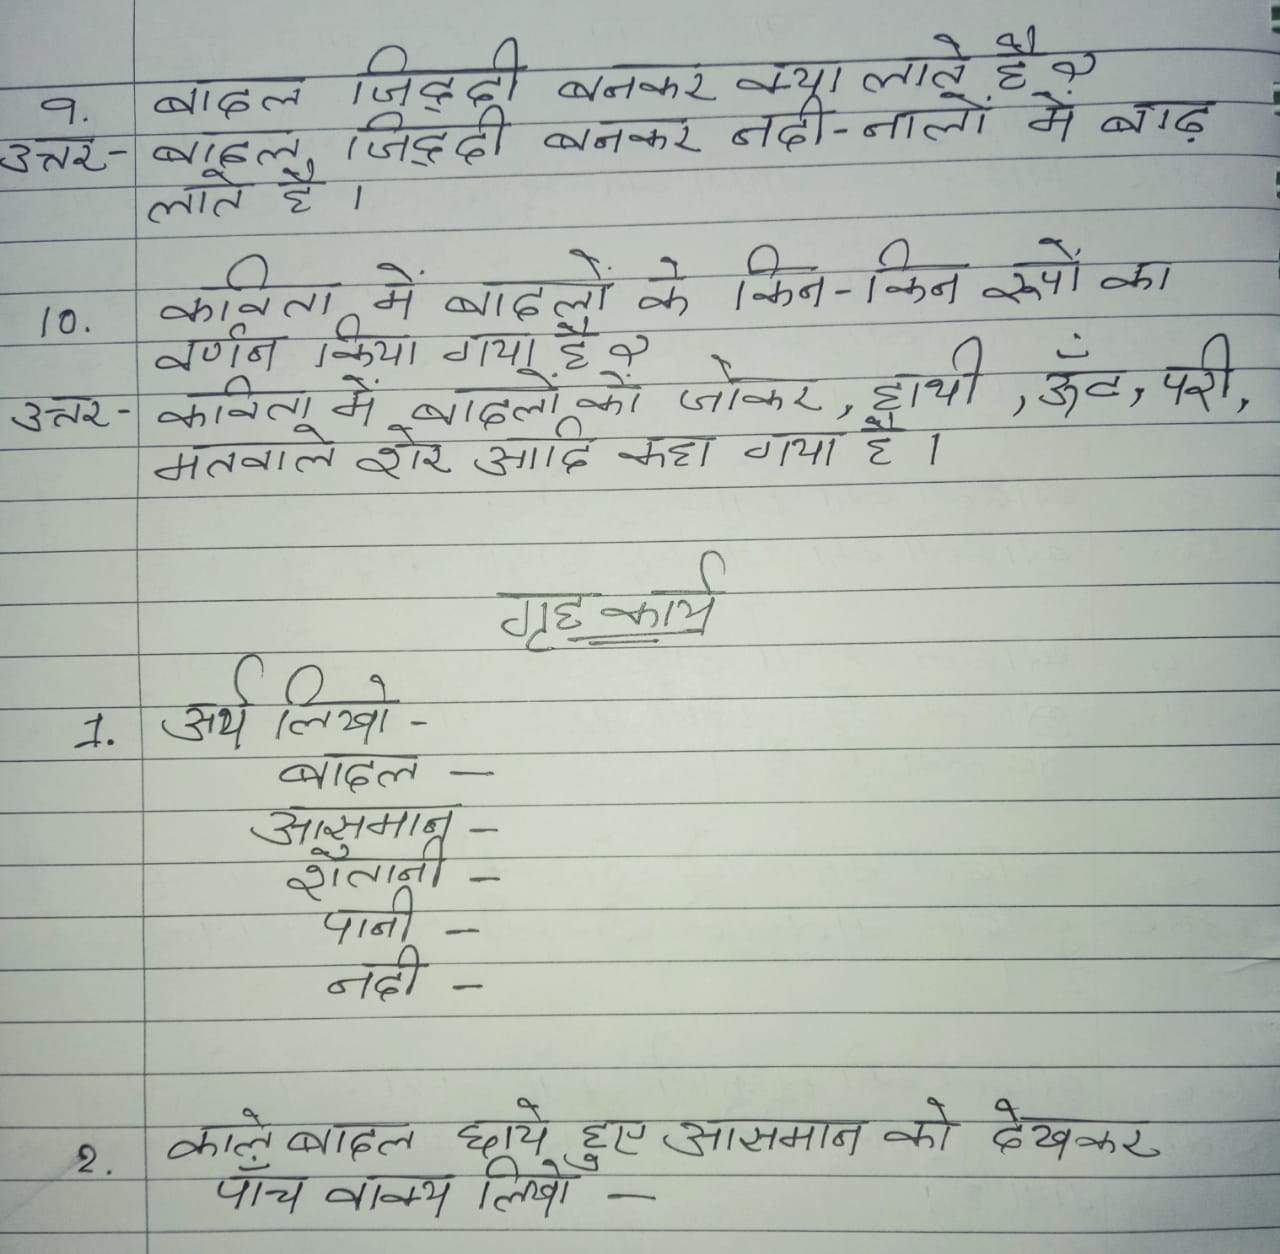 9. बादल जिद्दी बनकर क्या लाते है ?
उत्तर- बादल जिद्दी बनकर नदी-नालों में बाढ़
लाते है ।
10. कविता में बादलों के किन-किन रूपों का
वर्णन किया गया है ?
उत्तर- कविता में बादलों को जोकर, हाथी, ऊँट, परी,
मतवाले शेर आदि कहा गया है ।
गृह कार्य
1. अर्थ लिखो -
बादल -
आसमान -
शैतानी -
पानी -
नदी -
2. काले बादल छाये हुए आसमान को देखकर
पाँच वाक्य लिखो -